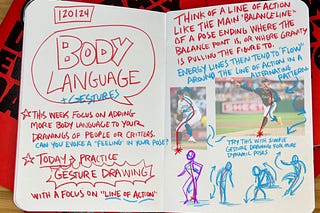 120124
BODY
LANGUAGE
+ GESTURES
THIS WEEK FOCUS ON ADDING
MORE BODY LANGUAGE TO YOUR
DRAWINGS OF PEOPLE OR CRITTERS.
CAN YOU EVOKE A "FEELING" IN YOUR POSE?
TODAY PRACTICE
GESTURE DRAWING
WITH A FOCUS ON "LINE OF ACTION"
THINK OF A LINE OF ACTION
LIKE THE MAIN "BALANCE LINE"
OF A POSE ENDING WHERE THE
BALANCE POINT IS, OR WHERE GRAVITY
IS PULLING THE FIGURE TO.
ENERGY LINES THEN TEND TO "FLOW"
AROUND THE LINE OF ACTION IN A
ALTERNATING
PATTERN
TRY THIS WITH SIMPLE
GESTURE DRAWINGS FOR MORE
DYNAMIC POSES